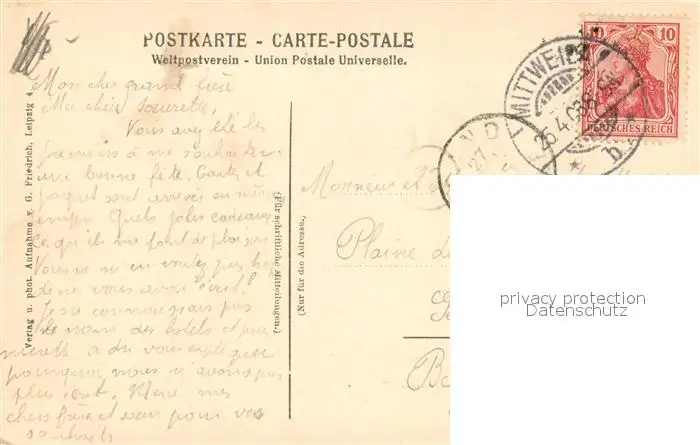 POSTKARTE - CARTE-POSTALE
Weltpostverein - Union Postale Universelle.
Mon cher grand frère
Ma chère soeurette,
Vous avez été les
premiers à me souhaiter
une bonne fête. Cartes et
paquet sont arrivés en même
temps. Quels jolis cadeaux
Ce qu'ils me font de plaisir
Vous ne m'en voulez pas
de ne vous avoir écrit!
Je ne connaissais pas
le nom des hotels et
a dû vous expliquer
pourquoi nous n'avons pas
plus écrit. Merci mes
chers frère et soeur pour vos
souhaits
Verlag u. phot. Aufnahme v. G. Friedrich, Leipzig 4.
(Für schriftliche Mitteilungen.)
(Nur für die Adresse.)
Monsieur et
Plaine de
MITTWEIDA
25.4.03
b
27
10
DEUTSCHES REICH
privacy protection
Datenschutz